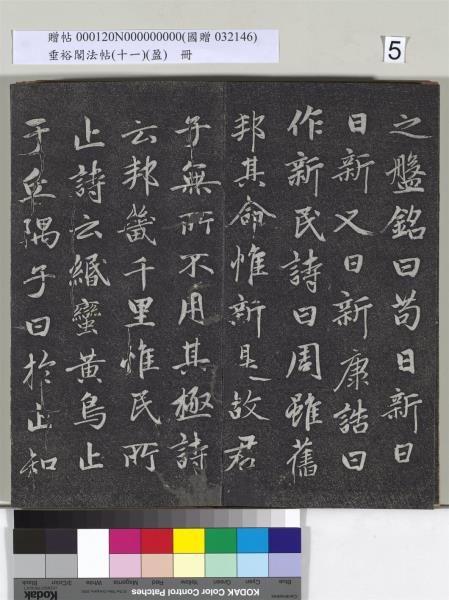 贈帖 000120N000000000(國贈 032146)
垂裕閣法帖(十一)(盈) 冊
5
之盤銘曰苟日新日
日新又日新康誥曰
作新民詩曰周雖舊
邦其命惟新是故君
子無所不用其極詩
云邦畿千里惟民所
止詩云緡蠻黃鳥止
于丘隅子曰於止知
Blue
Cyan
Green
Yellow
Red
Magenta
White
3/Color
Black
Kodak
KODAK Color Control Patches